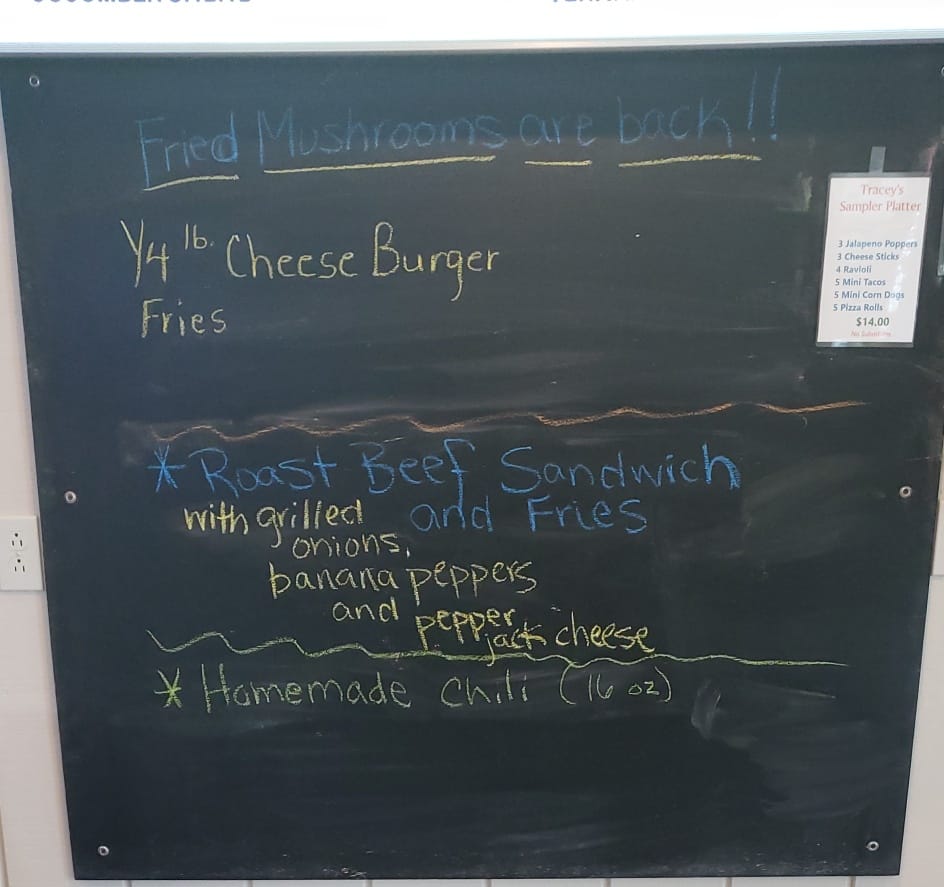 Fried Mushrooms are back!!
1/4 lb. Cheese Burger
Fries
* Roast Beef Sandwich
and Fries
with grilled
onions,
banana peppers
and pepper
jack cheese
* Homemade Chili (16 oz)
Tracey's
Sampler Platter
3 Jalapeno Poppers
3 Cheese Sticks
4 Ravioli
5 Mini Tacos
5 Mini Corn Dogs
5 Pizza Rolls
$14.00